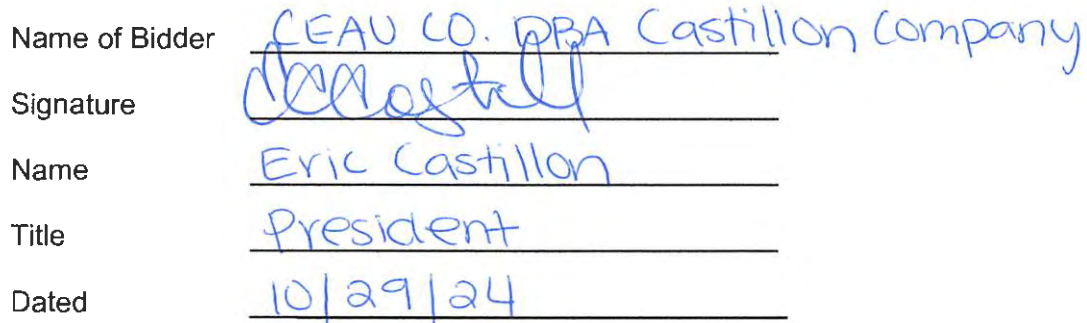 Name of Bidder CEAU CO. DBA Castillon Company
Signature
Name Eric Castillon
Title President
Dated 10/29/24